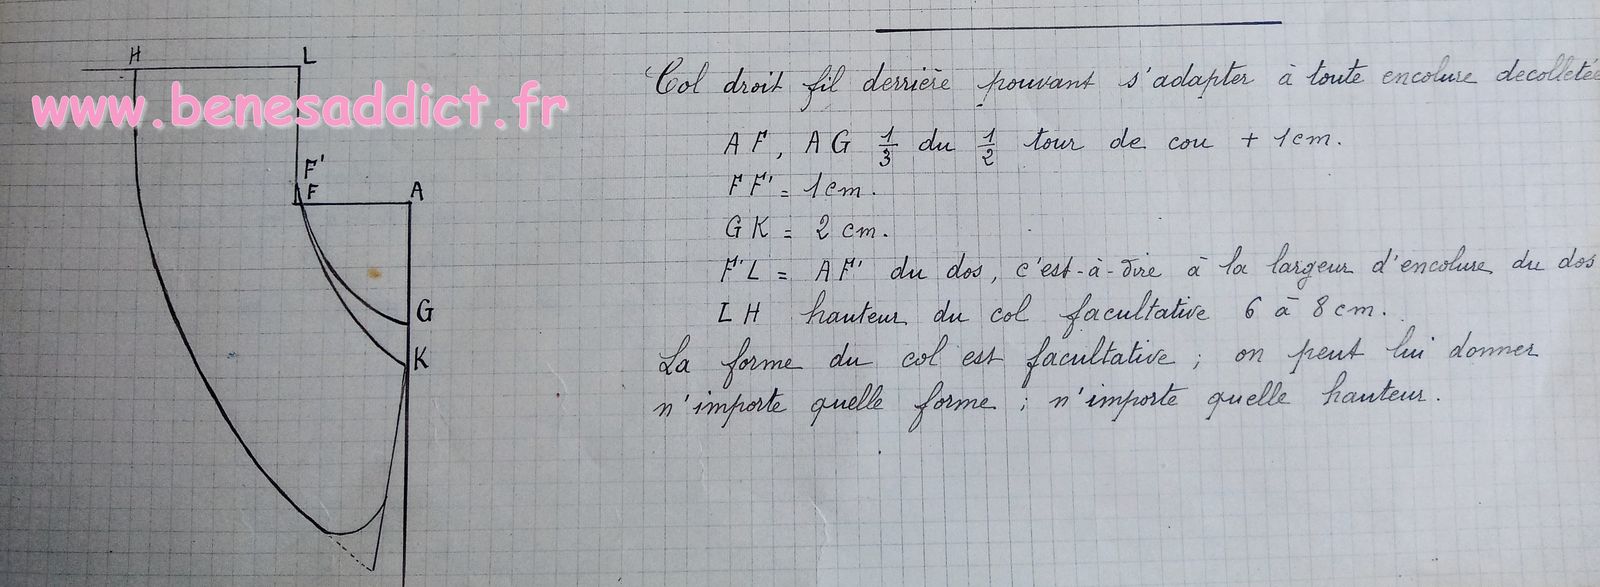 H L
www.benesaddict.fr
F'
F A
G
K
Col droit fil derrière pouvant s'adapter à toute encolure decolletée
AF, AG 1/3 du 1/2 tour de cou + 1cm.
FF' = 1cm.
GK = 2 cm.
F'L = AF' du dos, c'est-à-dire à la largeur d'encolure du dos
LH hauteur du col facultative 6 à 8 cm.
La forme du col est facultative ; on peut lui donner
n'importe quelle forme ; n'importe quelle hauteur.